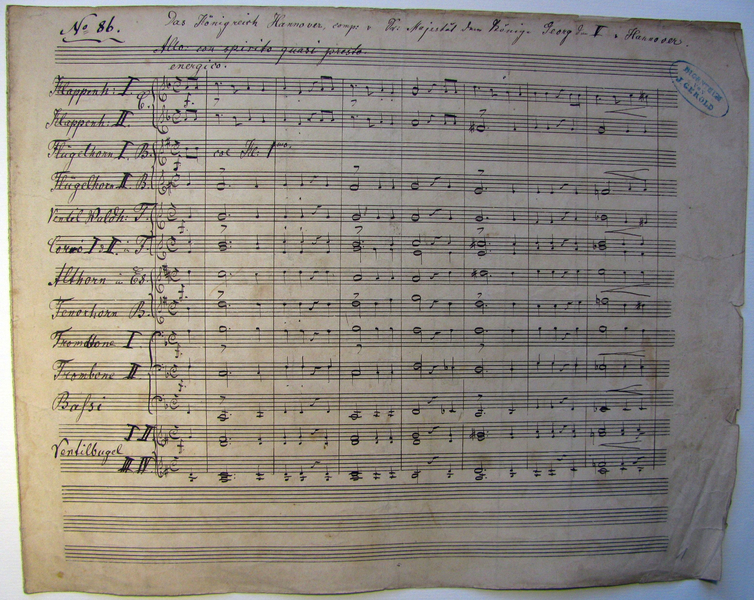 No 86.
Das Königreich Hannover, comp: v. Sr: Majestät dem König Georg V Hannover.
Allo con spirito quasi presto
energico.
Klappenh: I
C.
Klappenh: II
Flügelhorn I. B.
col Kl: 1mo.
Flügelhorn II B.
Ventil Waldh: F.
Corno I & II. F
Althorn in Es.
Tenorhorn B.
Trombone I
Trombone II
Bassi
I II
Ventilbugel
III IV
J GEROLD